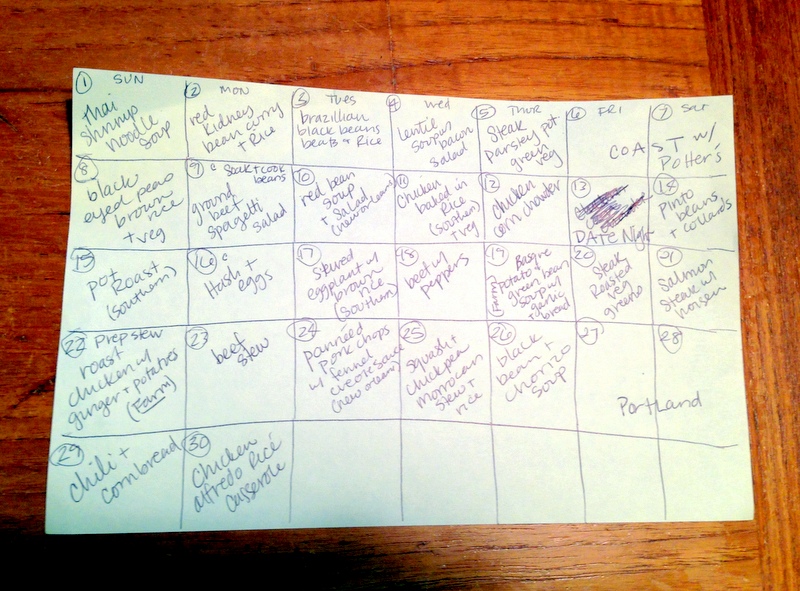 1 SUN
Thai
shrimp
noodle
soup
2 MON
red
kidney
bean curry
+ Rice
3 TUES
brazillian
black beans
beats + Rice
4 Wed
lentil
soup w/
bacon
salad
5 THUR
Steak
parsley pot
green
veg
6 FRI
7 Sat
COAST w/
Potter's
8
black
eyed peas
brown
rice
+ veg
9 Soak + cook
beans
ground
beef
spagetti
salad
10
red bean
soup
+ salad
(new orleans)
11
Chicken
baked in
Rice
(southern)
+ veg
12
chicken
corn chowder
13
DATE Night
14
Pinto
beans
+ collards
15
pot
Roast
(southern)
16
Hash +
eggs
17
Stewed
eggplant w/
brown
rice
(southern)
18
beef w/
peppers
19
Basque
Potato +
green bean
soup w/
garlic
bread
(Farm)
20
Steak
Roasted
veg
greens
21
Salmon
Steak w/
22 Prep stew
roast
chicken w/
ginger + Potatoes
(Farm)
23
beef
stew
24
pannéed
pork chops
w/ fennel
creole sauce
(new orleans)
25
squash +
chickpea
morrocan
stew +
rice
26
black
bean +
chorizo
soup
27
28
Portland
29
Chili +
cornbread
30
Chicken
alfredo Rice
casserole